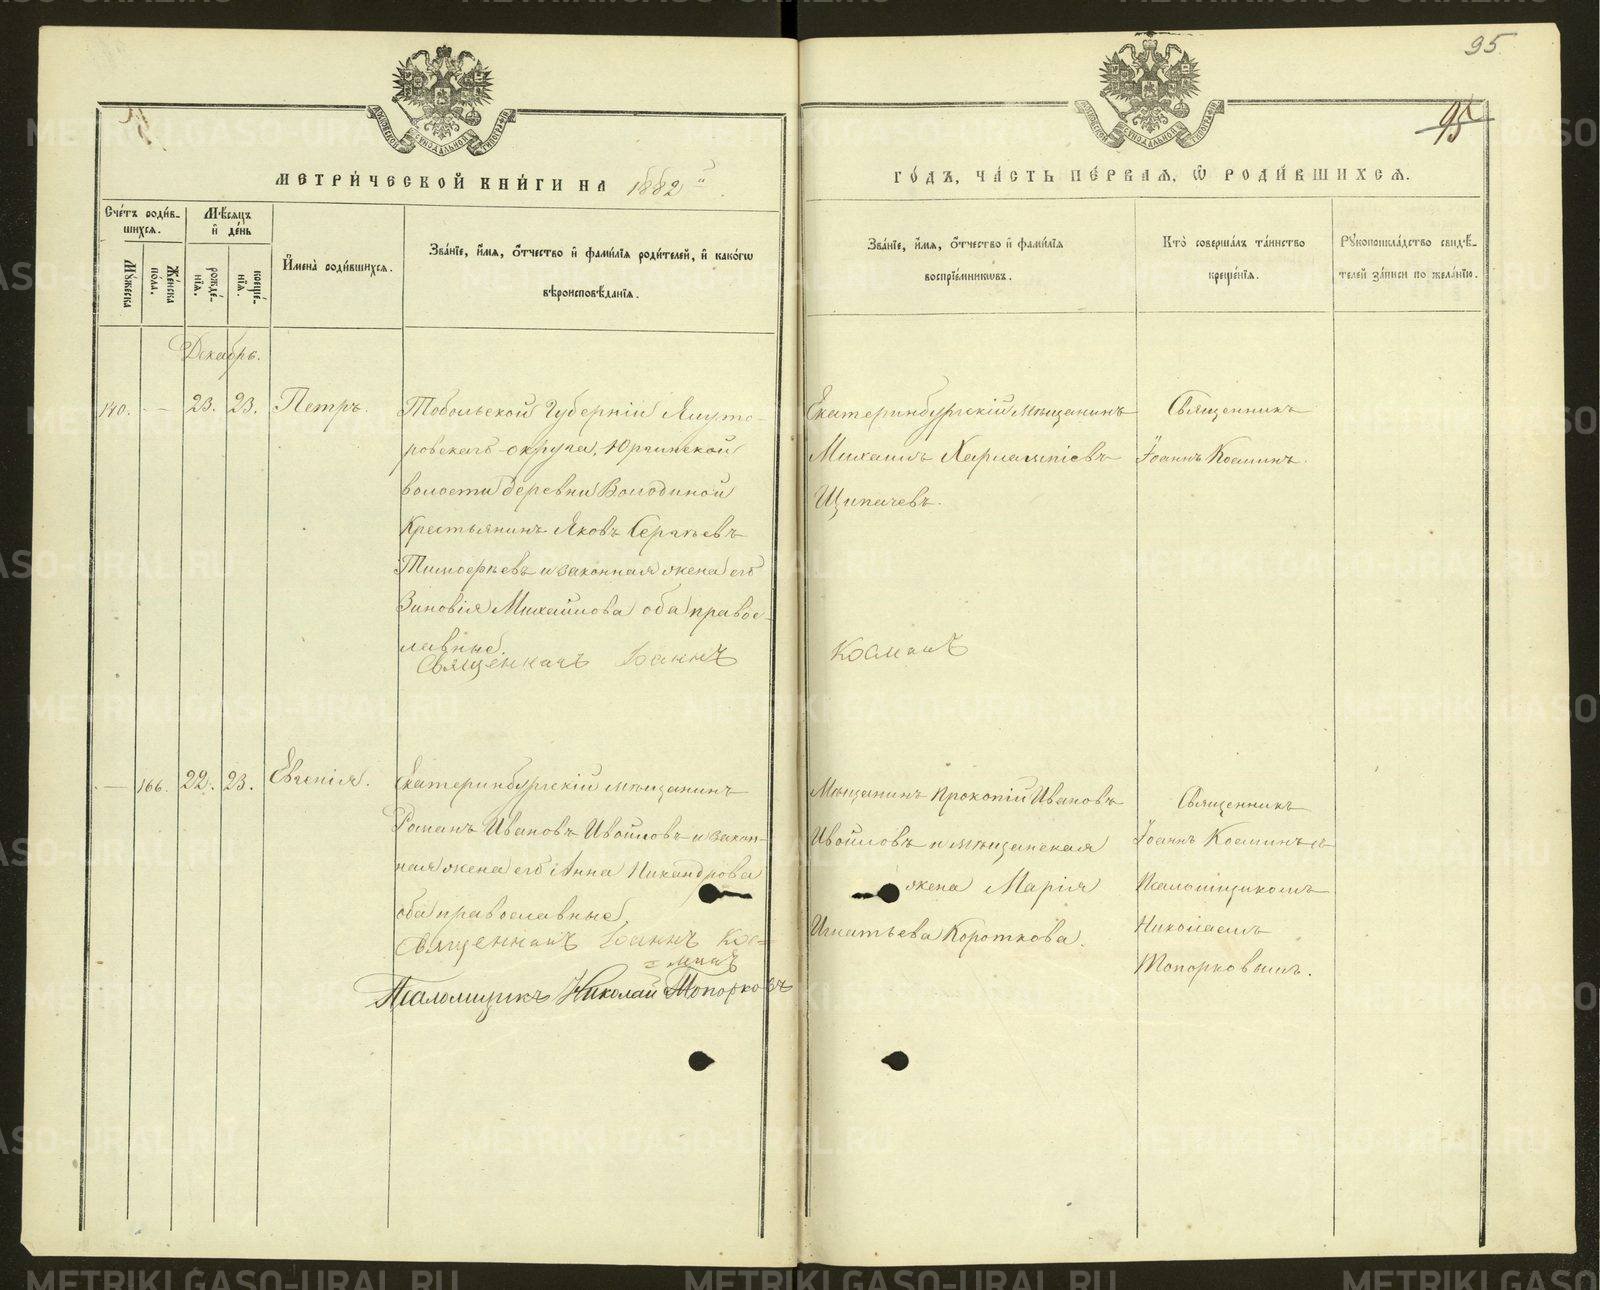 95
95
МЕТРИ́ЧЕСКОЙ КНИ́ГИ НА 1882й
ГО́ДЪ, ЧА́СТЬ ПЕ́РВАЯ, Ѿ РОДИ́ВШИХСЯ.
Сче́тъ роди́в-
шихся.
Му́жеска
Же́нска
по́ла.
Мѣ́сяцъ
и҆ де́нь
рожде́-
нїя.
креще́-
нїя.
И҆мена̀ роди́вшихся.
Зва́нїе, и҆́мя, ѻ҆́тчество и҆ фамі́лїя роди́телей, и҆ како́гѡ
вѣроисповѣ́данїя.
Зва́нїе, и҆́мя, ѻ҆́тчество и҆ фамі́лїя
воспрїе́мниковъ.
Кто̀ соверша́лъ та́инство
креще́нїя.
Рукоприкла́дство свидѣ́-
телей за́писи по жела́нїю.
Декабрь.
140. — 23. 23. Петръ.
Тобольской Губерніи Ялуто-
ровскаго округа, Юргинской
волости деревни Володиной
Крестьянинъ Яковъ Сергѣевъ
Тимофеевъ и законная жена его
Зиновія Михайлова оба право-
славные.
Священникъ Іоаннъ Косминъ
Екатеринбургскій мѣщанинъ
Михаилъ Харлампіевъ
Щипачевъ.
Священникъ
Іоаннъ Косминъ.
— 166. 22. 23. Евгенія.
Екатеринбургскій мѣщанинъ
Романъ Ивановъ Ивойловъ и закон-
ная жена его Анна Никандрова
оба православные.
Священникъ Іоаннъ Кос-
минъ
Псаломщикъ Николай Топорковъ
Мѣщанинъ Прокопій Ивановъ
Ивойловъ и мѣщанская
жена Марія
Игнатьева Короткова.
Священникъ
Іоаннъ Косминъ съ
Псаломщикомъ
Николаемъ
Топорковымъ.
METRIKI.GASO-URAL.RU